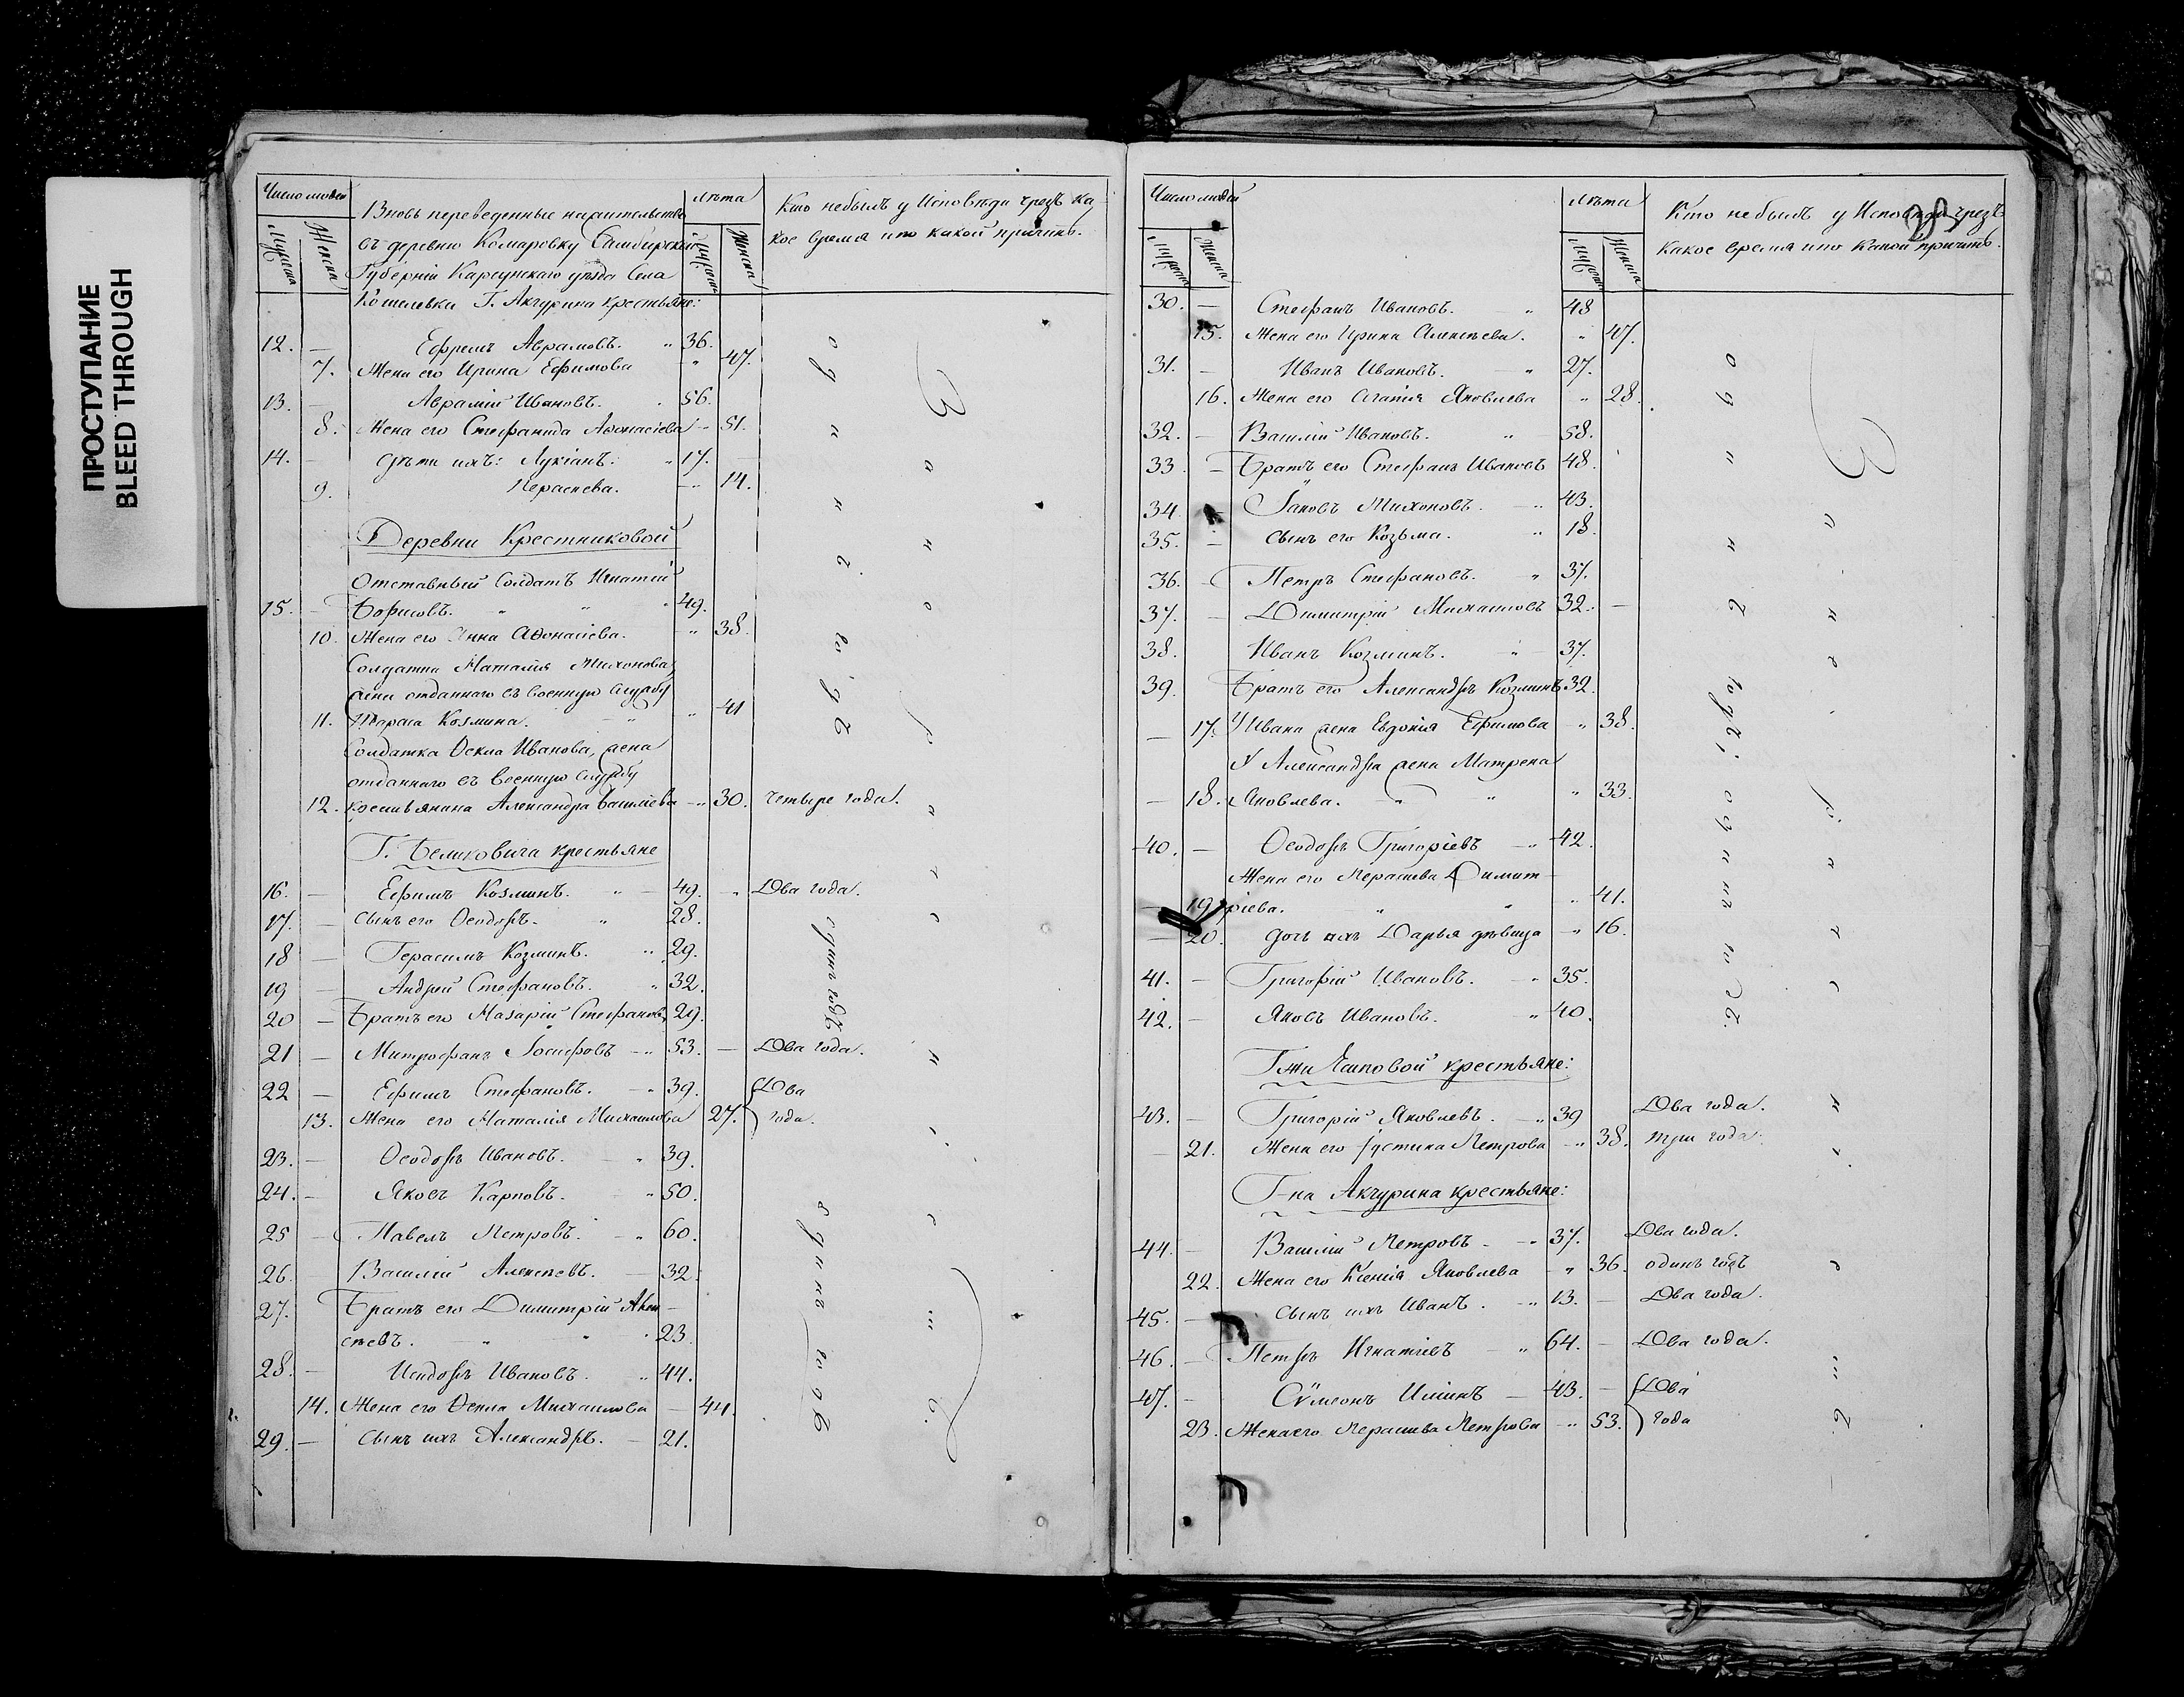 ПРОСТУПАНИЕ
BLEED THROUGH
Число людей
Мужеска
Женска
Вновь переведенные на жительство
въ деревню Комаровку Симбирской
Губерніи Карсунскаго уѣзда Села
Кошелевки Г. Акчурина крестьяне:
Лѣта
Мужеска
Женска
Кто небылъ у Исповѣди чрезъ ка-
кое время и по какой причинѣ.
12. — Ефремъ Аврамовъ. " 36.
7. Жена его Ирина Ефимова " 47.
13. — Аврамій Ивановъ. 56.
8. Жена его Стефанида Аѳонасіева " 51.
14. — Дѣти ихъ: Лукіанъ: " 17. —
9. Параскева. — " 14.
Деревни Крестниковой
Отставный Солдатъ Игнатій
15. — Борисовъ. " " " 49.
10. Жена его Анна Аѳонасіева. " 38.
Солдатка Наталія Тихонова,
жена отданнаго въ военную службу
11. Тараса Козмина. — " " 41
Солдатка Ѳекла Иванова, жена
отданнаго въ военную службу
12. крестьянина Александра Василіева — " 30. Четыре года.
Г. Бемковича крестьяне
16. — Ефимъ Козминъ. " — 49. — " Два года.
17. — Сынъ его Ѳеодоръ. " 28.
18 — Герасимъ Козминъ. " 29.
19 — Андрей Стефановъ. " 32.
20 — Братъ его Назарій Стефановъ 29.
одинъ годъ
21 — Митрофанъ Іосифовъ — " 53. — Два года.
22 — Ефимъ Стефановъ. — " 39. Два
13. Жена его Наталія Михаилова 27. года.
23. — Ѳеодоръ Ивановъ. " 39.
24. — Яковъ Карповъ. " 50.
25 — Павелъ Петровъ. — " 60.
26. Василій Алексѣевъ. — 32.
27. Братъ его Димитрій Алек-
сѣевъ. — " " 23.
28. — Исидоръ Ивановъ. " 44.
14. Жена его Ѳекла Михаилова — 44.
29. — Сынъ ихъ Александръ. — 21.
одинъ годъ
Число людей
Мужеска
Женска
Лѣта
Мужеска
Женска
Кто не былъ у Исповѣди чрезъ
какое время и по какой причинѣ.
30. — Стефанъ Ивановъ. " 48
15. Жена его Ирина Алексѣева. " 47.
31. — Иванъ Ивановъ. " 27.
16. Жена его Агапія Яковлева " 28.
32. — Василій Ивановъ. " — 58.
33 — Братъ его Стефанъ Ивановъ 48.
34. — Іаковъ Тихоновъ. — " 43.
35. — Сынъ его Козьма. " 18.
36. — Петръ Стефановъ. " 37.
37. — Димитрій Михаиловъ 32. —
38. Иванъ Козминъ. " — 37.
39. Братъ его Александръ Козминъ 32.
— 17. У Ивана жена Евдокія Ефимова " 38.
У Александра жена Матрена
— 18. Яковлева. — " " " 33.
40. — Ѳеодоръ Григоріевъ — " 42.
Жена его Параскева Димит-
— 19. ріева. " " " 41.
— 20. Дочь ихъ Дарья дѣвица " 16.
41. — Григорій Ивановъ. — " 35.
42. — Яковъ Ивановъ. " 40.
Г-жи Есиповой крестьяне:
43. — Григорій Яковлевъ. — " 39 Два года.
— 21. Жена его Іустина Петрова — " 38. три года.
Г-на Акчурина крестьяне:
44. — Василій Петровъ — " 37. Два года.
22. Жена его Ксенія Яковлева — " 36. одинъ годъ
45. — Сынъ ихъ Иванъ. — " 13. — Два года.
46. — Петръ Игнатіевъ — " 64. — Два года.
47. — Сѵмеонъ Илиинъ — 43. — Два
23. Жена его Параскева Петрова — " 53. года